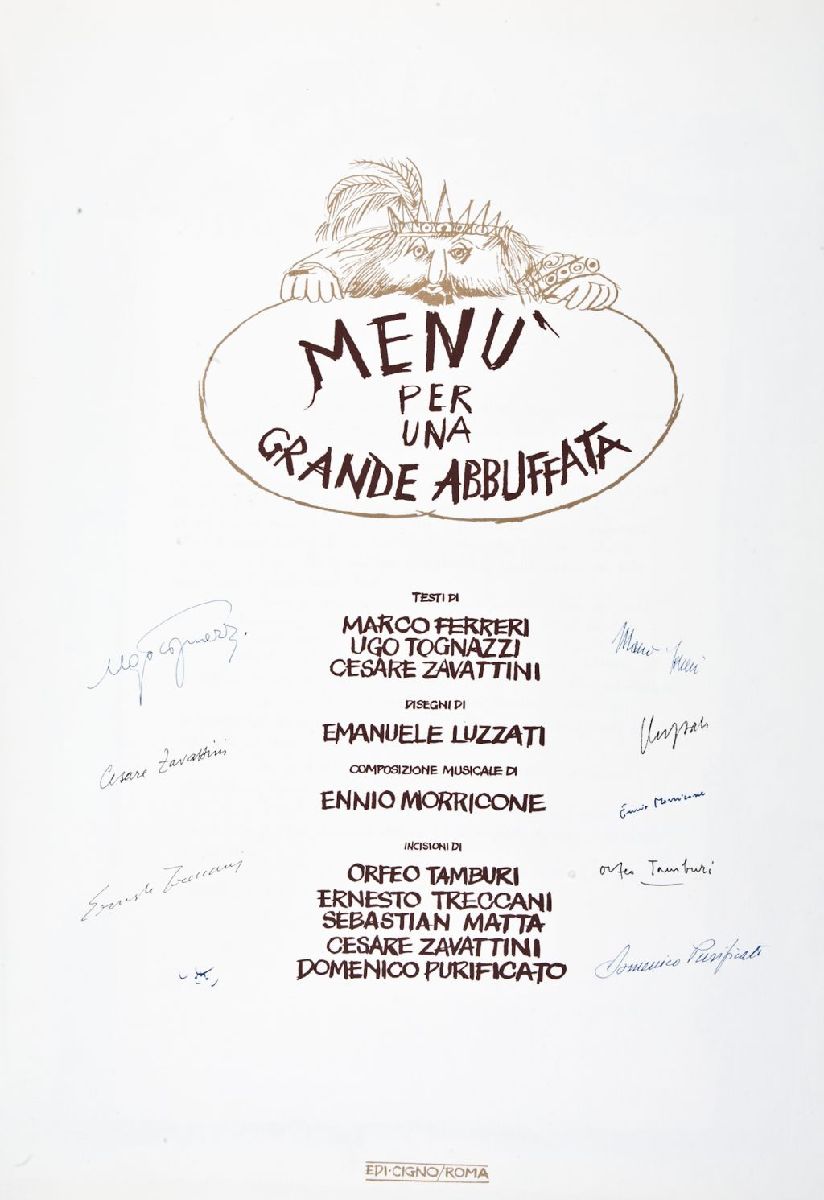 MENU'
PER
UNA
GRANDE ABBUFFATA
TESTI DI
MARCO FERRERI
UGO TOGNAZZI
CESARE ZAVATTINI
DISEGNI DI
EMANUELE LUZZATI
COMPOSIZIONE MUSICALE DI
ENNIO MORRICONE
INCISIONI DI
ORFEO TAMBURI
ERNESTO TRECCANI
SEBASTIAN MATTA
CESARE ZAVATTINI
DOMENICO PURIFICATO
Cesare Zavattini
Ernesto Treccani
Ennio Morricone
Orfeo Tamburi
Domenico Purificato
EDI·CIGNO/ROMA